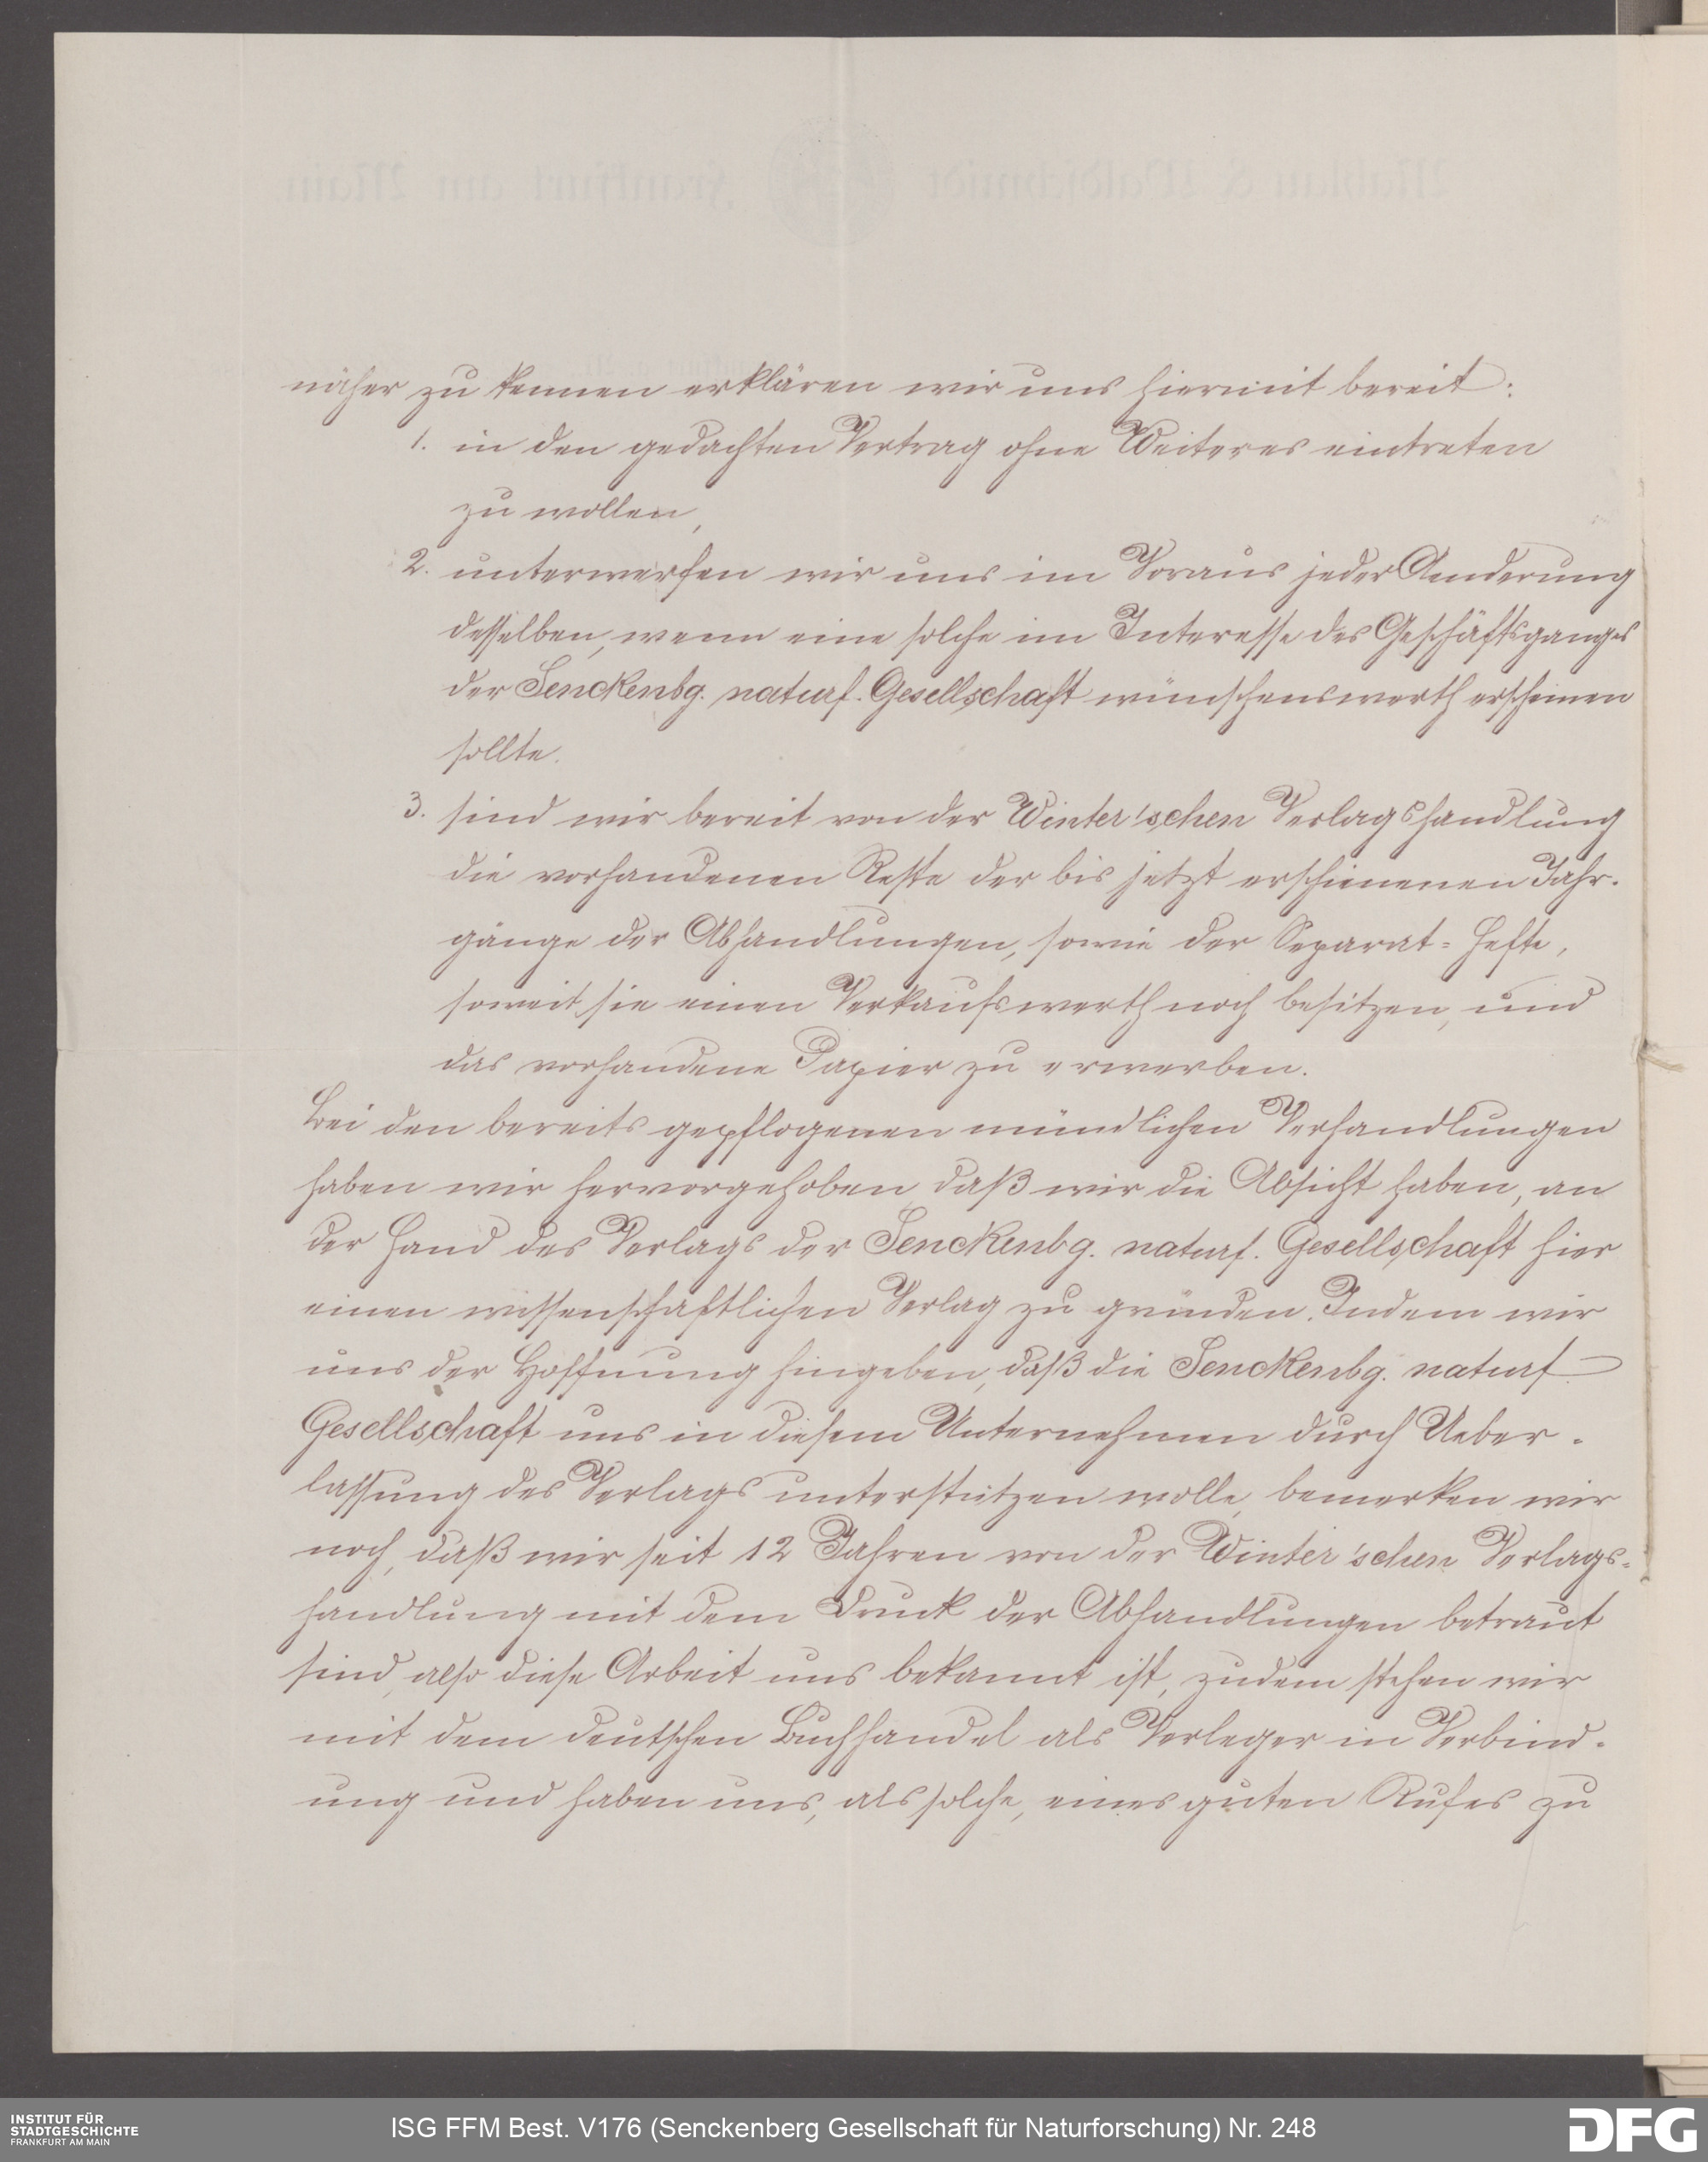 näher zu kennen erklären wir uns hiermit bereit:
1. in den gedachten Vertrag ohne Weiteres eintreten
zu wollen,
2. unterwerfen wir uns im Voraus jeder Aenderung
desselben, wenn eine solche im Interesse des Geschäftsganges
der Senckenbg. naturf. Gesellschaft wünschenswerth erscheinen
sollte.
3. sind wir bereit von der Winter'schen Verlagshandlung
die vorhandenen Reste der bis jetzt erschienenen Jahr-
gänge der Abhandlungen, sowie der Separat=Hefte,
soweit sie einen Verkaufswerth noch besitzen, und
das vorhandene Papier zu erwerben.
Bei den bereits gepflogenen mündlichen Verhandlungen
haben wir hervorgehoben daß wir die Absicht haben, an
der Hand des Verlags der Senckenbg. naturf. Gesellschaft hier
einen wissenschaftlichen Verlag zu gründen. Indem wir
uns der Hoffnung hingeben, daß die Senckenbg. naturf.
Gesellschaft uns in diesem Unternehmen durch Ueber-
lassung des Verlags unterstützen wolle, bemerken wir
noch, daß wir seit 12 Jahren von der Winter'schen Verlags=
handlung mit dem Druck der Abhandlungen betraut
sind, also diese Arbeit uns bekannt ist, zudem stehen wir
mit dem deutschen Buchhandel als Verleger in Verbind-
ung und haben uns, als solche, eines guten Rufes zu
INSTITUT FÜR
STADTGESCHICHTE
FRANKFURT AM MAIN
ISG FFM Best. V176 (Senckenberg Gesellschaft für Naturforschung) Nr. 248
DFG